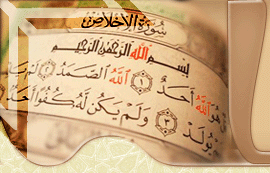 سُورَةُ الإِخْلَاصِ
بِسْمِ اللَّهِ الرَّحْمَٰنِ الرَّحِيمِ
هُوَ اللَّهُ أَحَدٌ ١ اللَّهُ الصَّمَدُ ٢ لَمْ
يُولَدْ ٣ وَلَمْ يَكُن لَّهُ كُفُوًا